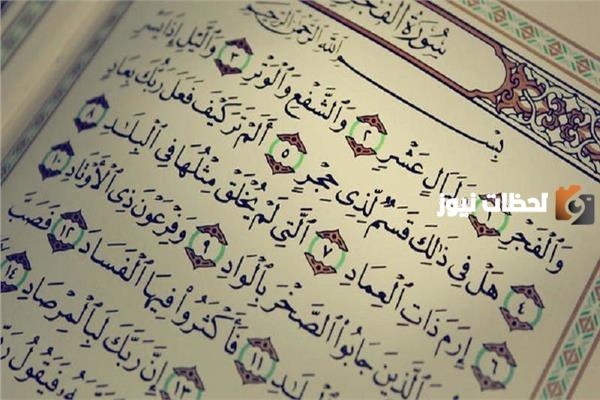 سُورَةُ الفَجْرِ
بِسْمِ ٱللَّهِ ٱلرَّحْمَٰنِ ٱلرَّحِيمِ
وَٱلْفَجْرِ ١ وَلَيَالٍ عَشْرٍ ٢ وَٱلشَّفْعِ وَٱلْوَتْرِ ٣ وَٱلَّيْلِ إِذَا يَسْرِ
٤ هَلْ فِى ذَٰلِكَ قَسَمٌ لِّذِى حِجْرٍ ٥ أَلَمْ تَرَ كَيْفَ فَعَلَ رَبُّكَ بِعَادٍ
٦ إِرَمَ ذَاتِ ٱلْعِمَادِ ٧ ٱلَّتِى لَمْ يُخْلَقْ مِثْلُهَا فِى ٱلْبِلَٰدِ ٨
ٱلَّذِينَ جَابُوا۟ ٱلصَّخْرَ بِٱلْوَادِ ٩ وَفِرْعَوْنَ ذِى ٱلْأَوْتَادِ ١٠
١١ فَأَكْثَرُوا۟ فِيهَا ٱلْفَسَادَ ١٢ فَصَبَّ
١٣ إِنَّ رَبَّكَ لَبِٱلْمِرْصَادِ ١٤
فَيَقُولُ
لحظات نيوز